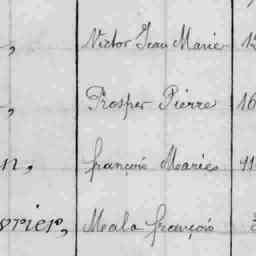 , Victor Jean Marie 12
, Prosper Pierre 16
n, françois Marie 11
vrier, Malo françois